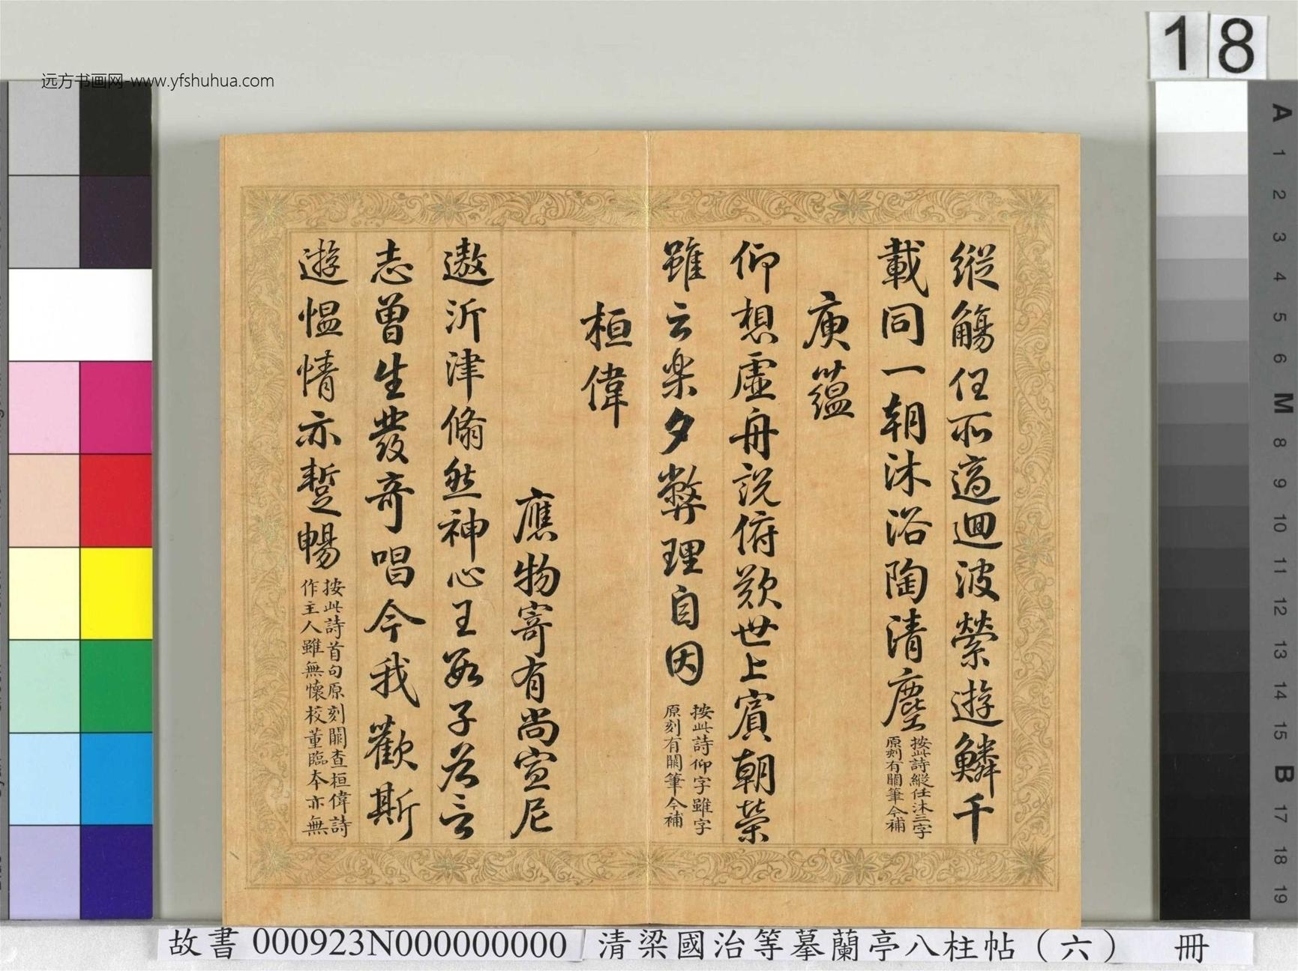 远方书画网-www.yfshuhua.com
18
縱觴任所適迴波縈遊鱗千
載同一朝沐浴陶清塵
按此詩縱任沐三字
原刻有闕筆今補
庾蘊
仰想虛舟說俯歎世上賓朝榮
雖云樂夕弊理自因
按此詩仰字雖字
原刻有闕筆今補
桓偉
應物寄有尚宣尼
遨沂津翛然神心王數子各言
志曾生發奇唱今我歡斯
遊慍情亦蹔暢
按此詩首句原刻闕查桓偉詩
作主人雖無懷校董臨本亦無
A
1
2
3
4
5
6
M
8
9
10
11
12
13
14
15
B
17
18
19
故書 000923N000000000 清梁國治等摹蘭亭八柱帖（六） 冊